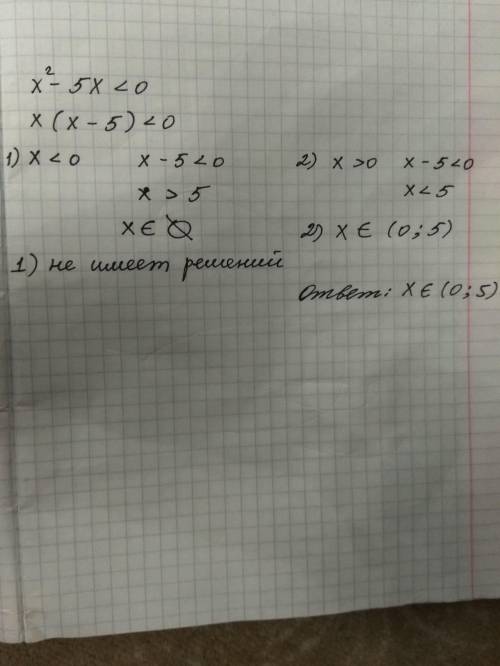 x² - 5x < 0
x(x-5) < 0
1) x < 0 x - 5 < 0
x > 5
x ∈ ∅
1) не имеет решений
2) x > 0 x - 5 < 0
x < 5
2) x ∈ (0; 5)
Ответ: x ∈ (0; 5)